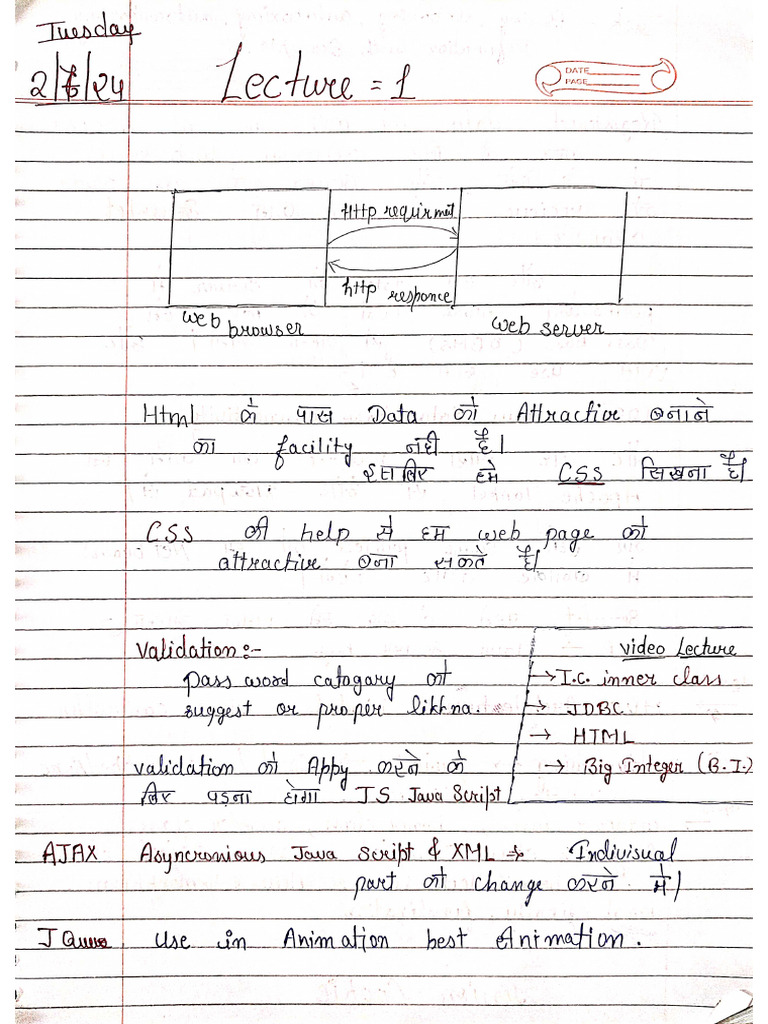 Tuesday
2/7/24
Lecture = 1
DATE
PAGE
Http requirmet
http responce
web browser
web server
Html के पास Data को Attractive बनाने
का facility नही है।
इसलिए हमे CSS सिखना है।
CSS की help से हम web page को
attractive बना सकते है।
Validation :-
Pass word catagary को
suggest or proper likhna.
validation को Appy करने के
लिए पड़ना होगा J.S Java Script
video Lecture
→ I.C. inner class
→ JDBC
→ HTML
→ Big Integer (B.I.)
AJAX Asyncronious Java Script & XML → Indivisual
part को change करने मे।
J Use in Animation best Animation.